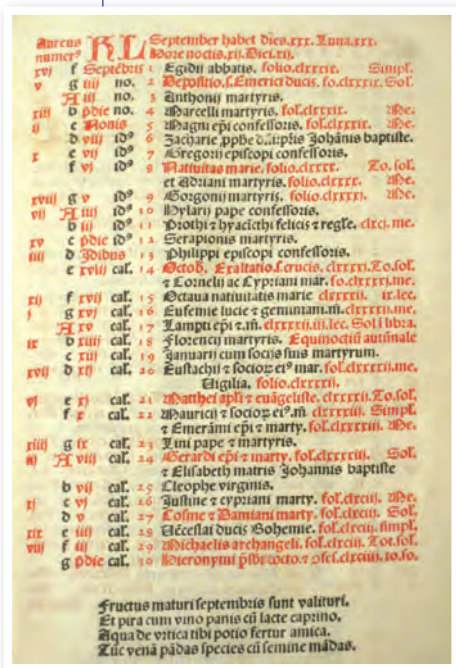 Aureus KL September habet dies.xxx.Luna.xxx.
numerꝰ Hore noctis.xij. Diei.xij.
xvj f Septēbris 1 Egidij abbatis. folio.clxxxix. Simpl.
v g iiij no. 2 Depositio.s.Emerici ducis. fo.clxxxix. Sol.
A iij no. 3 Anthonij martyris.
xiij b pdie no. 4 Marcelli martyris. fol.clxxxix. Me.
ij c Nonis 5 Magni epi confessoris. fol.clxxxix. Me.
d viij idꝰ 6 Zacharie pphe Johānis baptiste.
x e vij idꝰ 7 Gregorij episcopi confessoris.
f vj idꝰ 8 Natiuitas marie. folio.clxxxx. To. sol.
et Adriani martyris. folio.clxxxx. Me.
xviij g v idꝰ 9 Gorgonij martyris. folio.clxxxxj. Me.
vij A iiij idꝰ 10 Hylarij pape confessoris.
b iij idꝰ 11 Prothi ⁊ hyacicthi felicis ⁊ regle. clxcj. me.
xv c pdie idꝰ 12 Serapionis martyris.
iiij d Idibus 13 Philippi episcopi confessoris.
e xviij cal. 14 Octob. Exaltatio.s.crucis. clxxxxj. To. sol.
⁊ Cornelij ac Cypriani mar. fo.clxxxxj. me.
xij f xvij cal. 15 Octaua natiuitatis marie clxxxxij. ix.lec.
j g xvj cal. 16 Eufemie lucie ⁊ geminiani.m. clxxxxij. me.
A xv cal. 17 Lampti epi ⁊.m. clxxxxij.iij.lec. Sol i libra.
ix b xiiij cal. 18 Florencij martyris. Equinoctiū autūnale
c xiij cal. 19 Januarij cum socijs suis martyrum.
xvij d xij cal. 20 Eustachij ⁊ socioꝝ eiꝰ mar. fol.clxxxxij. me.
Uigilia. folio.clxxxxij.
vj e xj cal. 21 Matthei apli ⁊ euāgeliste. clxxxxij. To. sol.
f x cal. 22 Mauricij ⁊ socioꝝ eiꝰ.m. clxxxxij. Simpl.
⁊ Emerāmi epi ⁊ marty. fol.clxxxxiij. Me.
xiiij g ix cal. 23 Lini pape ⁊ martyris.
iij A viij cal. 24 Gerardi epi ⁊ marty. fol.clxxxxiij. Sol.
⁊ Elisabeth matris Johannis baptiste
b vij cal. 25 Cleophe virginis.
xj c vj cal. 26 Justine ⁊ cypriani marty. fol.clxciij. Me.
d v cal. 27 Cosme ⁊ Damiani marty. fol.clxciij. Sol.
xix e iiij cal. 28 Uēcesai ducis Bohemie. fol.clxciij. simpl.
viij f iij cal. 29 Michaelis archangeli. fol.clxciij. Tot. sol.
g pdie cal. 30 Hieronymi pṡbi ⁊octo. ⁊ ꝯfes. clxciiij. to. so.
Fructus maturi septembris sunt valituri.
Et pira cum vino panis cū lacte caprino.
Aqua de vrtica tibi potio fertur amica.
Tūc venā pādas species cū semine mādas.